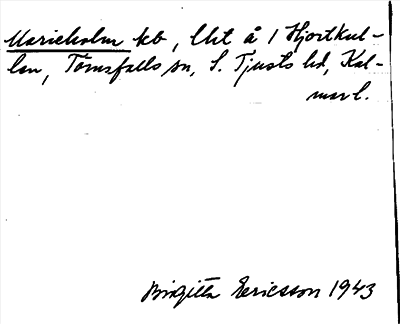 Marieholm kb, lht å 1 Hjortkul-
len, Törnsfalls sn, S. Tjusts hd, Kal-
mar l.
Birgitta Ericsson 1943